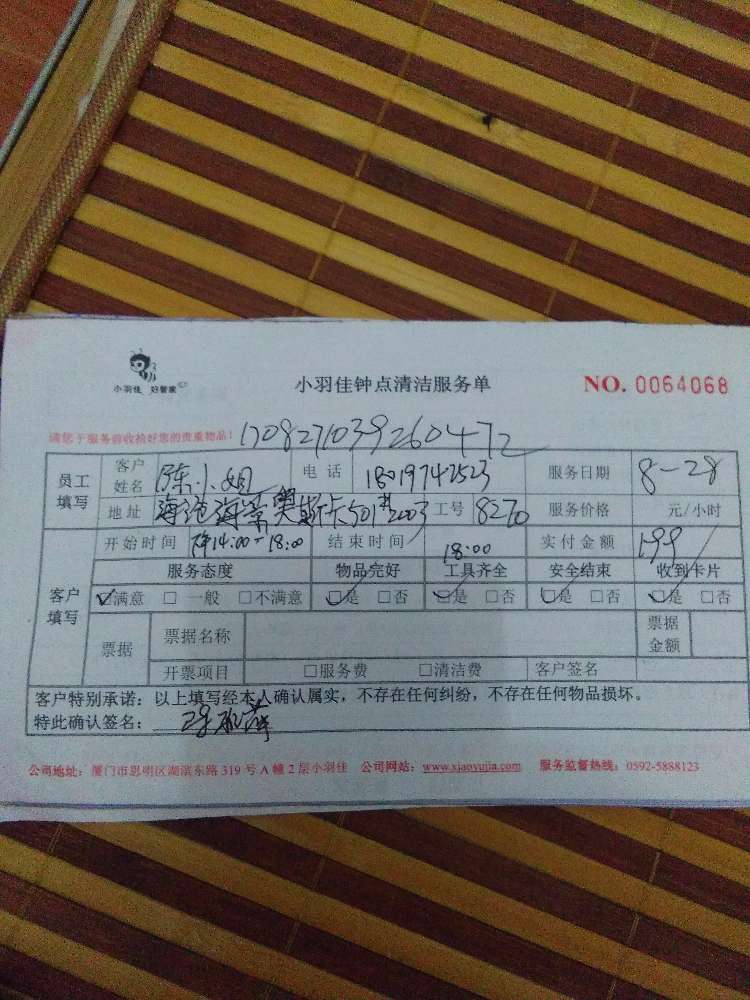 小羽佳 好管家
小羽佳钟点清洁服务单 NO. 0064068
请您于服务前收捡好您的贵重物品! 1708271039260472
员工填写 客户姓名 陈小姐 电话 18019742523 服务日期 8-28
地址 海沧海景奥斯卡501#2003 工号 8270 服务价格 元/小时
客户填写 开始时间 14:00-18:00 结束时间 18:00 实付金额 199
服务态度 物品完好 工具齐全 安全结束 收到卡片
☑满意 □一般 □不满意 ☑是 □否 ☑是 □否 ☑是 □否 ☑是 □否
票据 票据名称 票据金额
开票项目 □服务费 □清洁费 客户签名
客户特别承诺：以上填写经本人确认属实，不存在任何纠纷，不存在任何物品损坏。
特此确认签名：
公司地址：厦门市思明区湖滨东路 319 号 A 幢 2 层小羽佳 公司网站：www.xiaoyujia.com 服务监督热线：0592-5888123